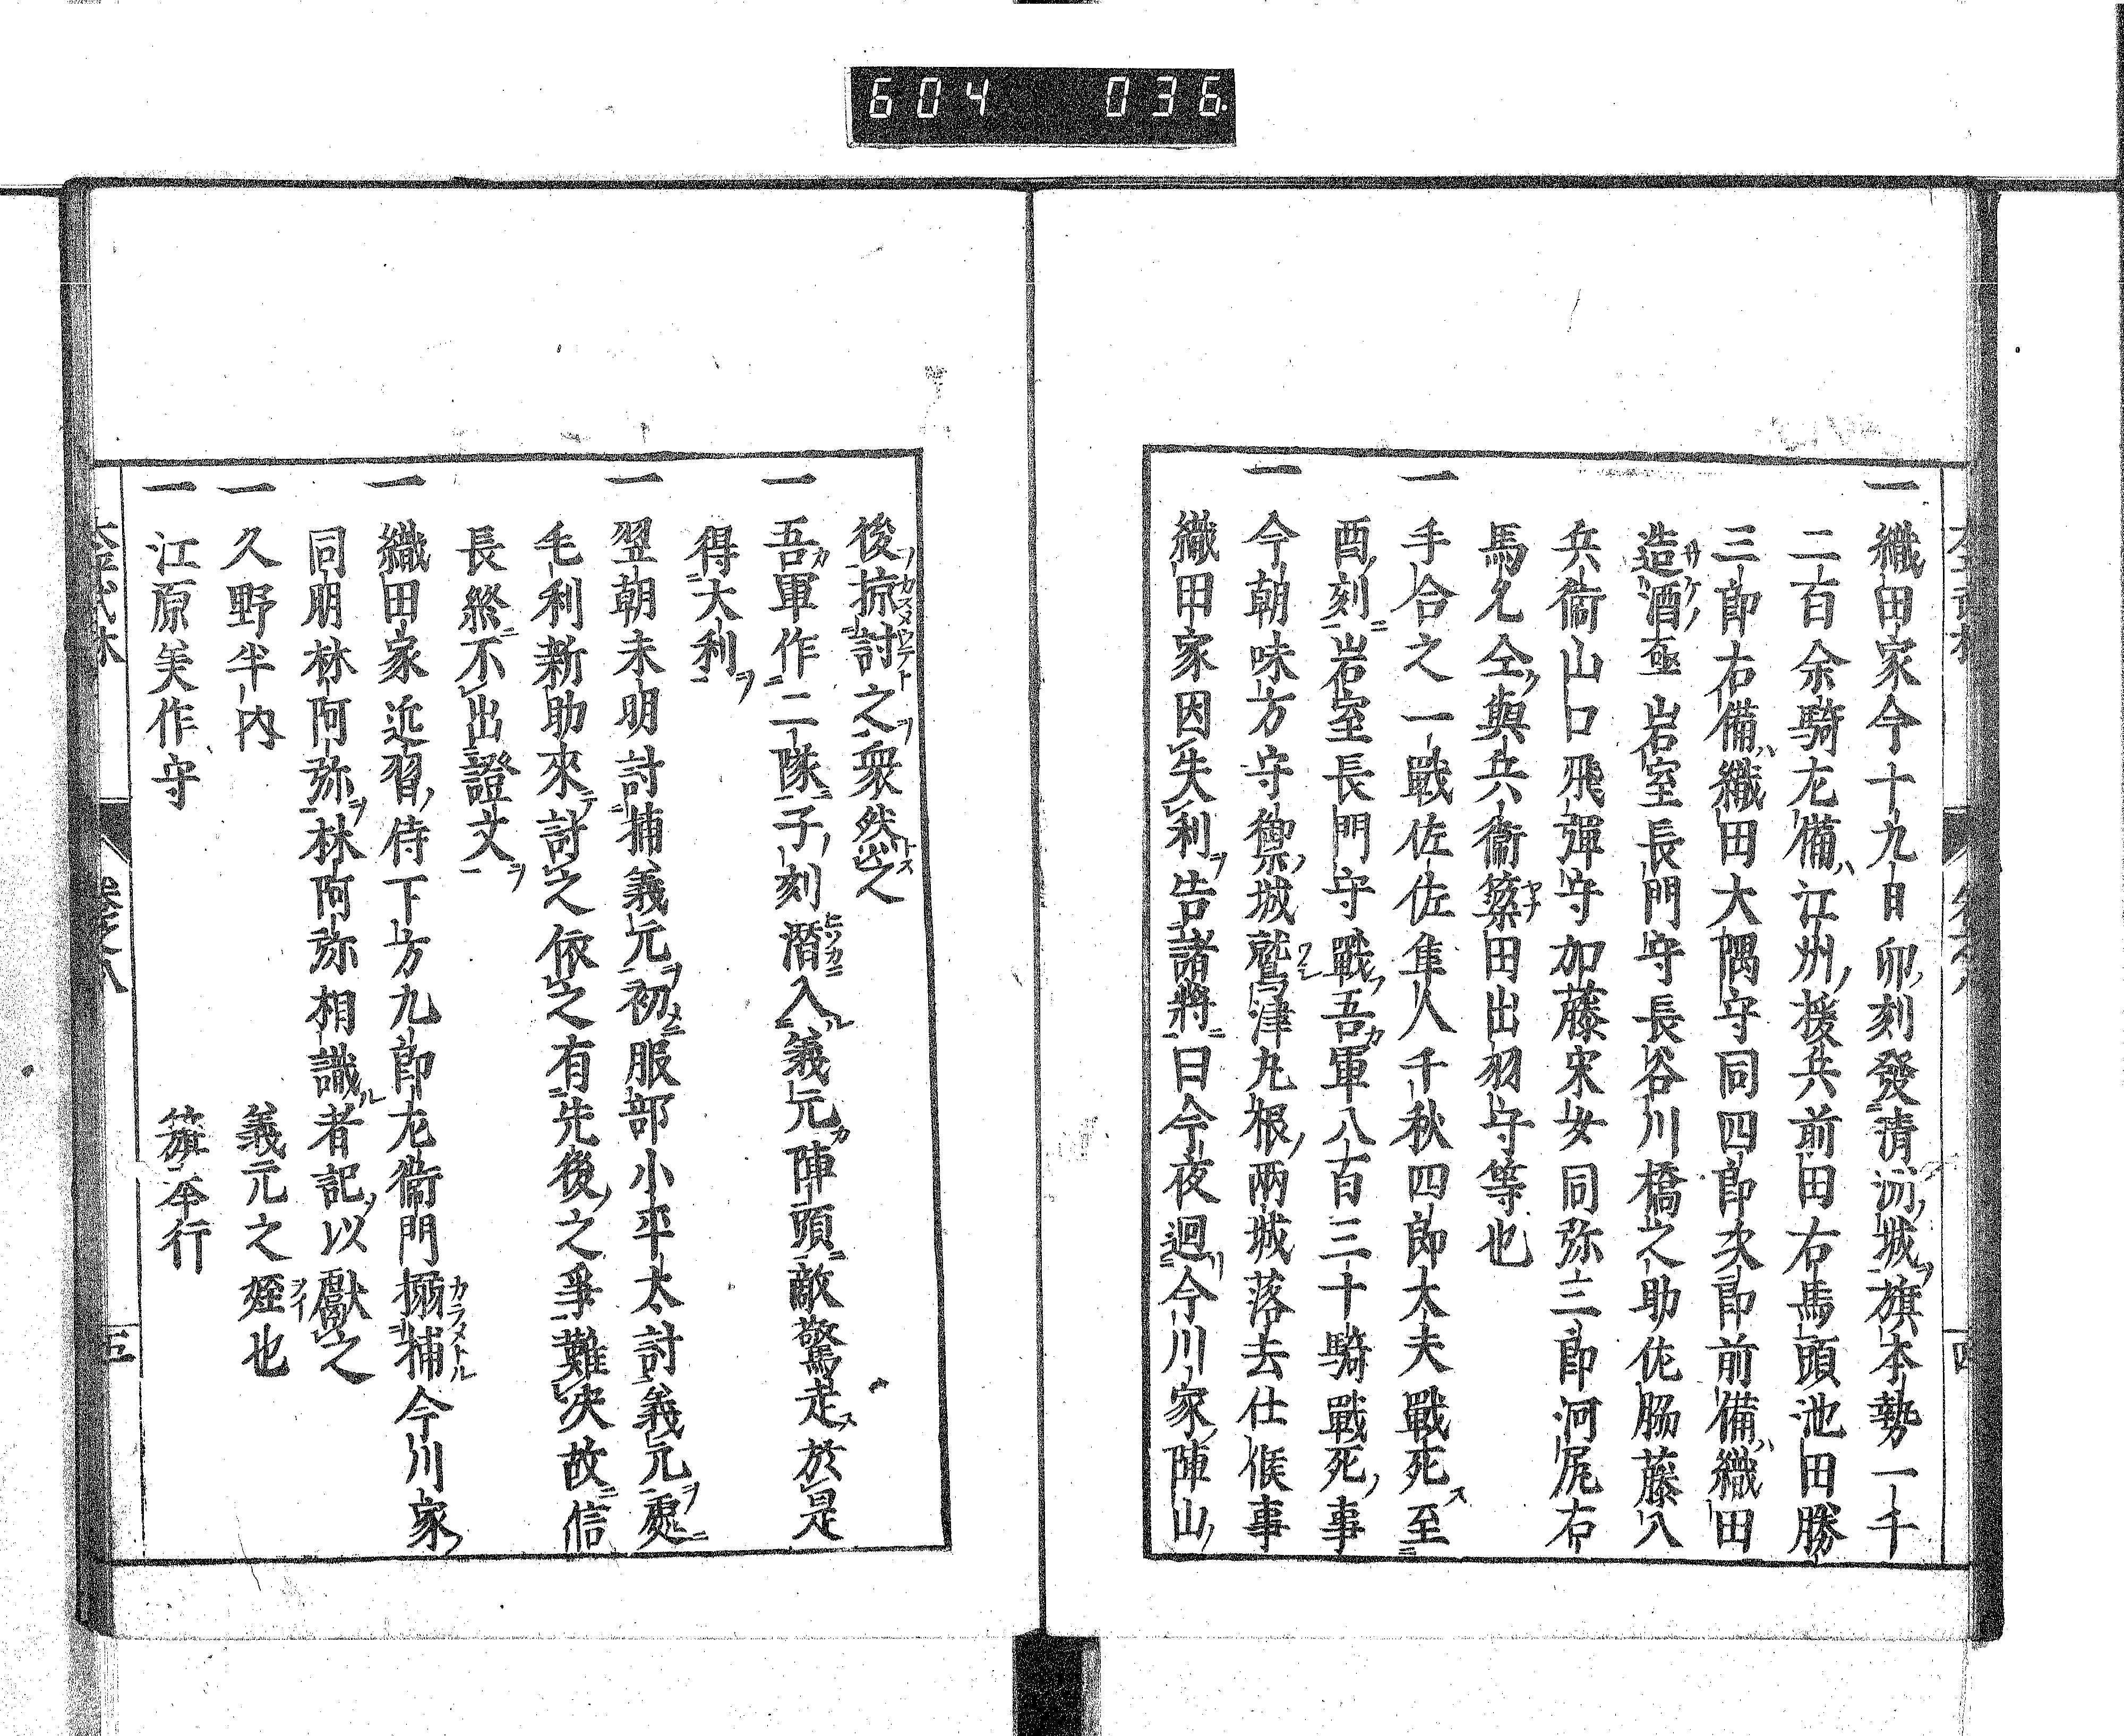 604 036
一織田家今十九日卯刻發清洲城旗本勢一千
二百余騎左備江州援兵前田右馬頭池田勝
三郎右備織田大隅守同四郎次郎前備織田
造酒亟岩室長門守長谷川橋之助佐脇藤八
兵衞山口飛彈守加藤宋女同弥三郎河尻右
馬允仝與兵衞簗田出羽守等也
一手合之一戰佐佐隼人千秋四郎太夫戰死至
酉刻岩室長門守戰吾軍八百三十騎戰死事
一今朝味方守禦城鷲津丸根兩城落去仕候事
織田家因失利告諸將曰今夜迴今川家陣山
後掠討之衆然之
一吾軍作二隊子刻潛入義元陣頭敵驚走於是
得大利
一翌朝未明討捕義元初服部小平太討義元處
毛利新助來討之依之有先後之爭難決故信
長終不出證文
一織田家近習侍下方九郎左衞門搦捕今川家
同朋林阿弥林阿弥相識者記以獻之
一久野半内 義元之姪也
一江原美作守 籏奉行
卷之八
五